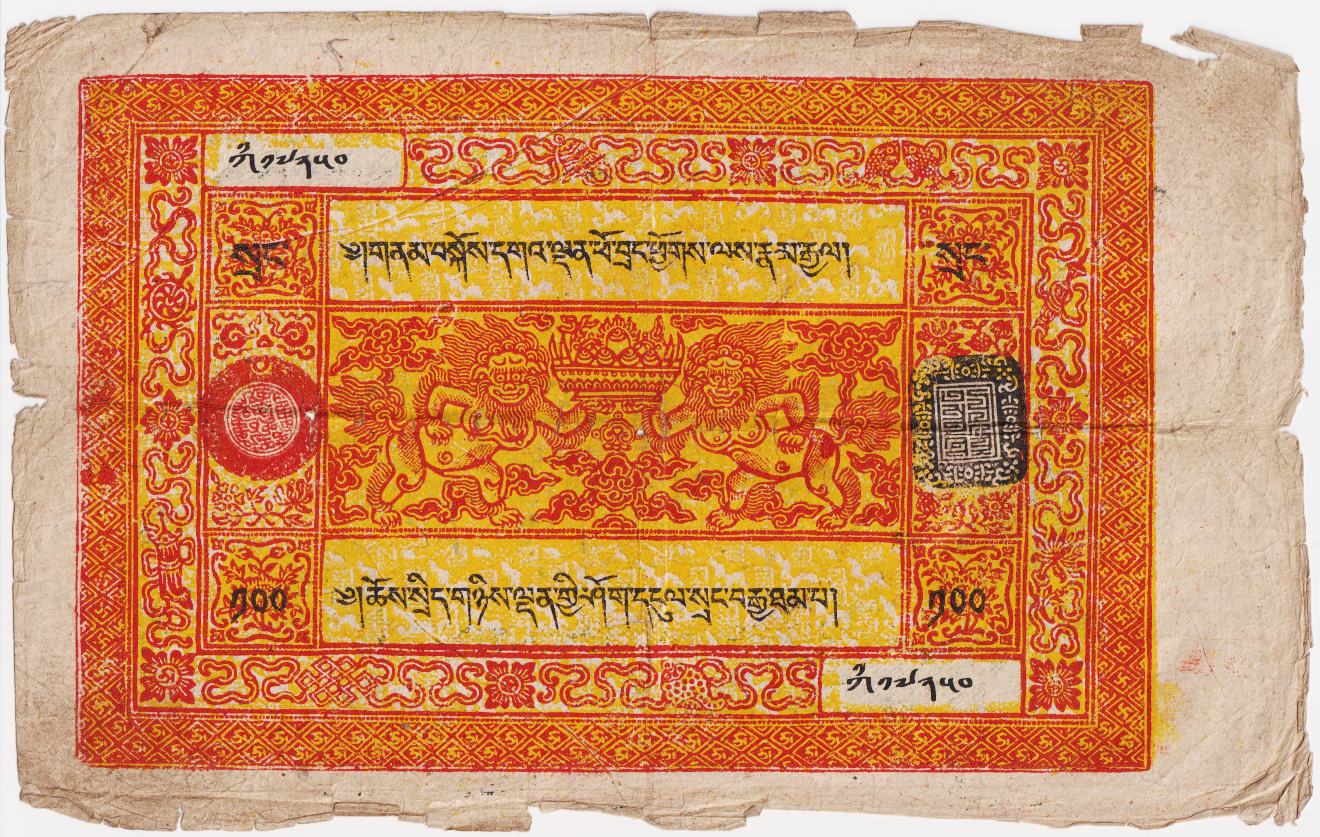 སྲང་
༄།གནམ་བསྐོས་དགའ་ལྡན་ཕོ་བྲང་ཕྱོགས་ལས་རྣམ་རྒྱལ།
སྲང་
༡༠༠
༄།ཆོས་སྲིད་གཉིས་ལྡན་གྱི་ཤོག་དངུལ་སྲང་བརྒྱ་ཐམ་པ།
༡༠༠